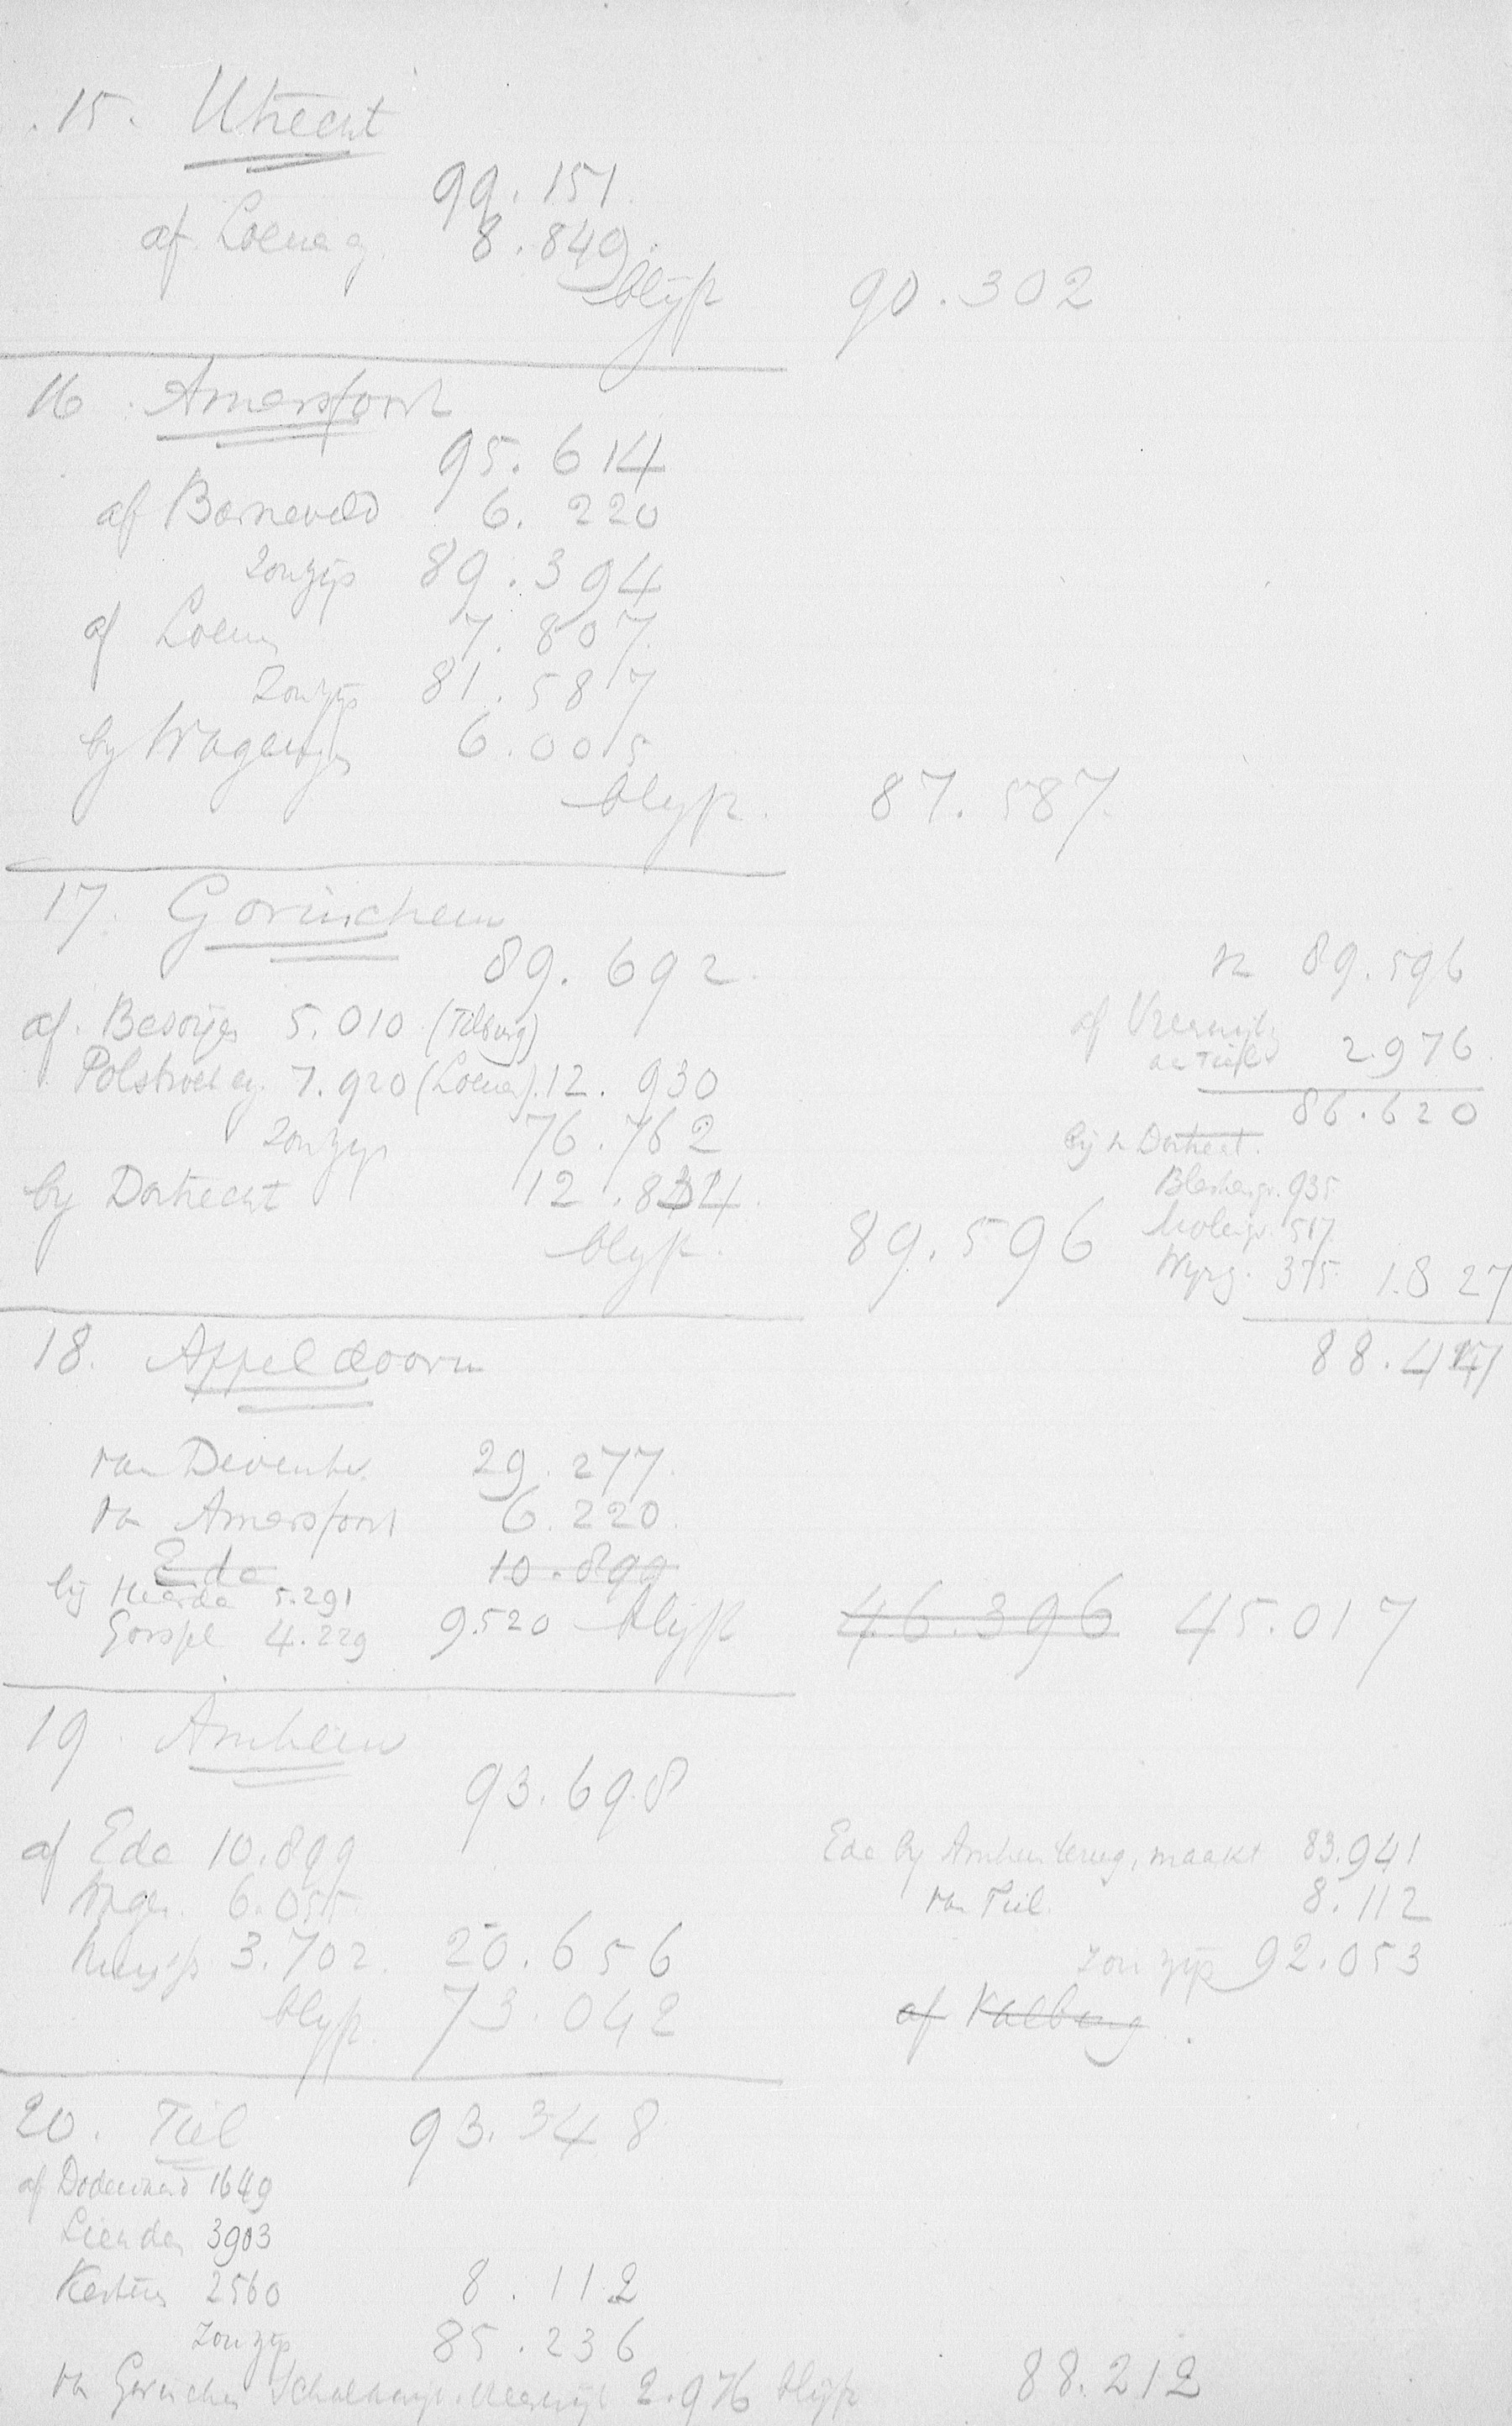 15. Utrecht
99.151
af Loenen 8.849
blijft 90.302
16. Amersfoort
95.614
af Barneveld 6.220
zou zijn 89.394
af Loenen 7.807
zou zijn 81.587
by Wagenign 6.005
blijft 87.587
17. Gorinchem
89.692
af. Besoijen 5.010 (Tilburg)
Polsbroek 7.920 (Loenen) 12.930
zou zijn 76.762
by Dordrecht 12.834
blijft 89.596
89.596
af Vreeswijk
2.976
86.620
bij Dordrecht
Bleskensgr. 935
Molenaar 517
Wijng. 375 1.827
88.447
18. Appeldoorn
van Deventer 29.277
van Amersfoort 6.220
Ede 10.899
bij Heerde 5.291
Gorssel 4.229 9.520 blijft 46.396 45.017
19. Arnhem
93.698
af Ede 10.899
Wagen. 6.055
3.702. 20.656
blijft 73.042
Ede by Arnhem terug, maakt 83.941
van Tiel 8.112
zou zijn 92.053
af Valburg
20. Tiel 93.348
af Dodewaard 1649
Lienden 3903
Kesteren 2560 8.112
zou zijn 85.236
van Gorinchem Schalkwijk. Vreeswijk 2.976 blijft 88.212